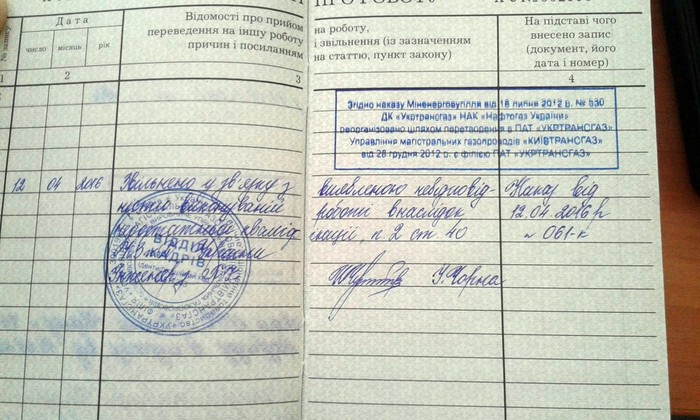 Дата
Відомості про прийом
на роботу,
На підставі чого
№ запису
число
місяць
рік
переведення на іншу роботу
і звільнення (із зазначенням
внесено запис
причин і посиланням
на статтю, пункт закону)
(документ, його
дата і номер)
1
2
3
4
Згідно наказу Міненерговугілля від 18 липня 2012 р. № 530
ДК «Укртрансгаз» НАК «Нафтогаз України»
реорганізовано шляхом перетворення в ПАТ "УКРТРАНСГАЗ"
Управління магістральних газопроводів «КИЇВТРАНСГАЗ»
від 28 грудня 2012 р. є філією ПАТ «УКРТРАНСГАЗ»
12 04 2016 Звільнено у зв'язку з
виявленою невідповід-
Наказ від
ністю виконуваній
роботі внаслідок
12.04.2016р
недостатньої кваліфі-
кації, п 2 ст. 40
№ 061-к
КЗпП України
Інженер
ВІДДІЛ
КАДРІВ
Чорна